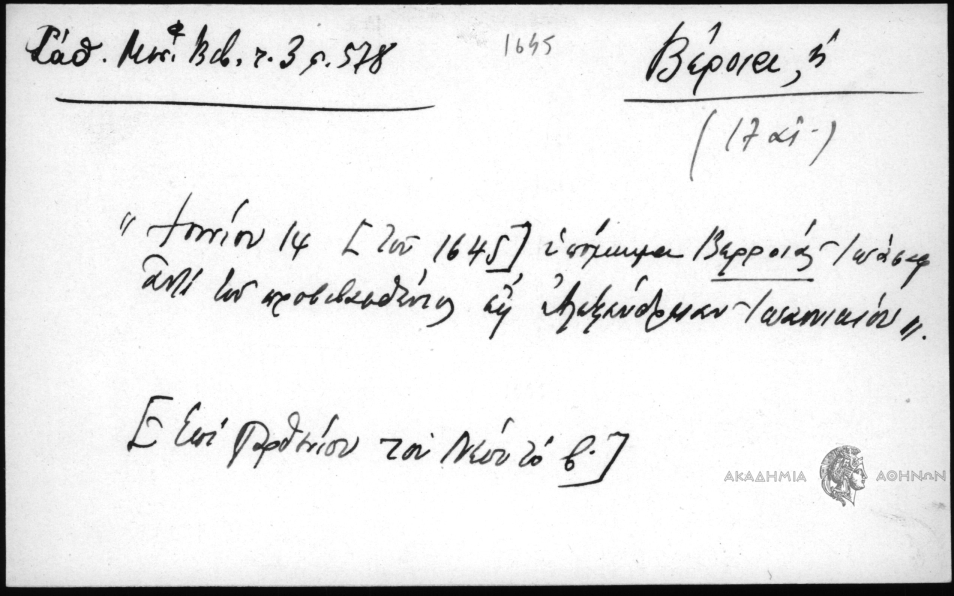 Σάθ. Μεσ. Βιβ. τ. 3 σ. 578
1645
Βέροια, ἡ
(17 αἰ.)
"Ἰουνίου 14 [τοῦ 1645] ὑπόμνημα Βερροίας Ἰωάσαφ
ἀντὶ τοῦ προβιβασθέντος εἰς Ἀλεξάνδρειαν Ἰωαννικίου".
[Ἐπὶ Παρθενίου τοῦ Νέου τὸ β΄]
ΑΚΑΔΗΜΙΑ ΑΘΗΝΩΝ